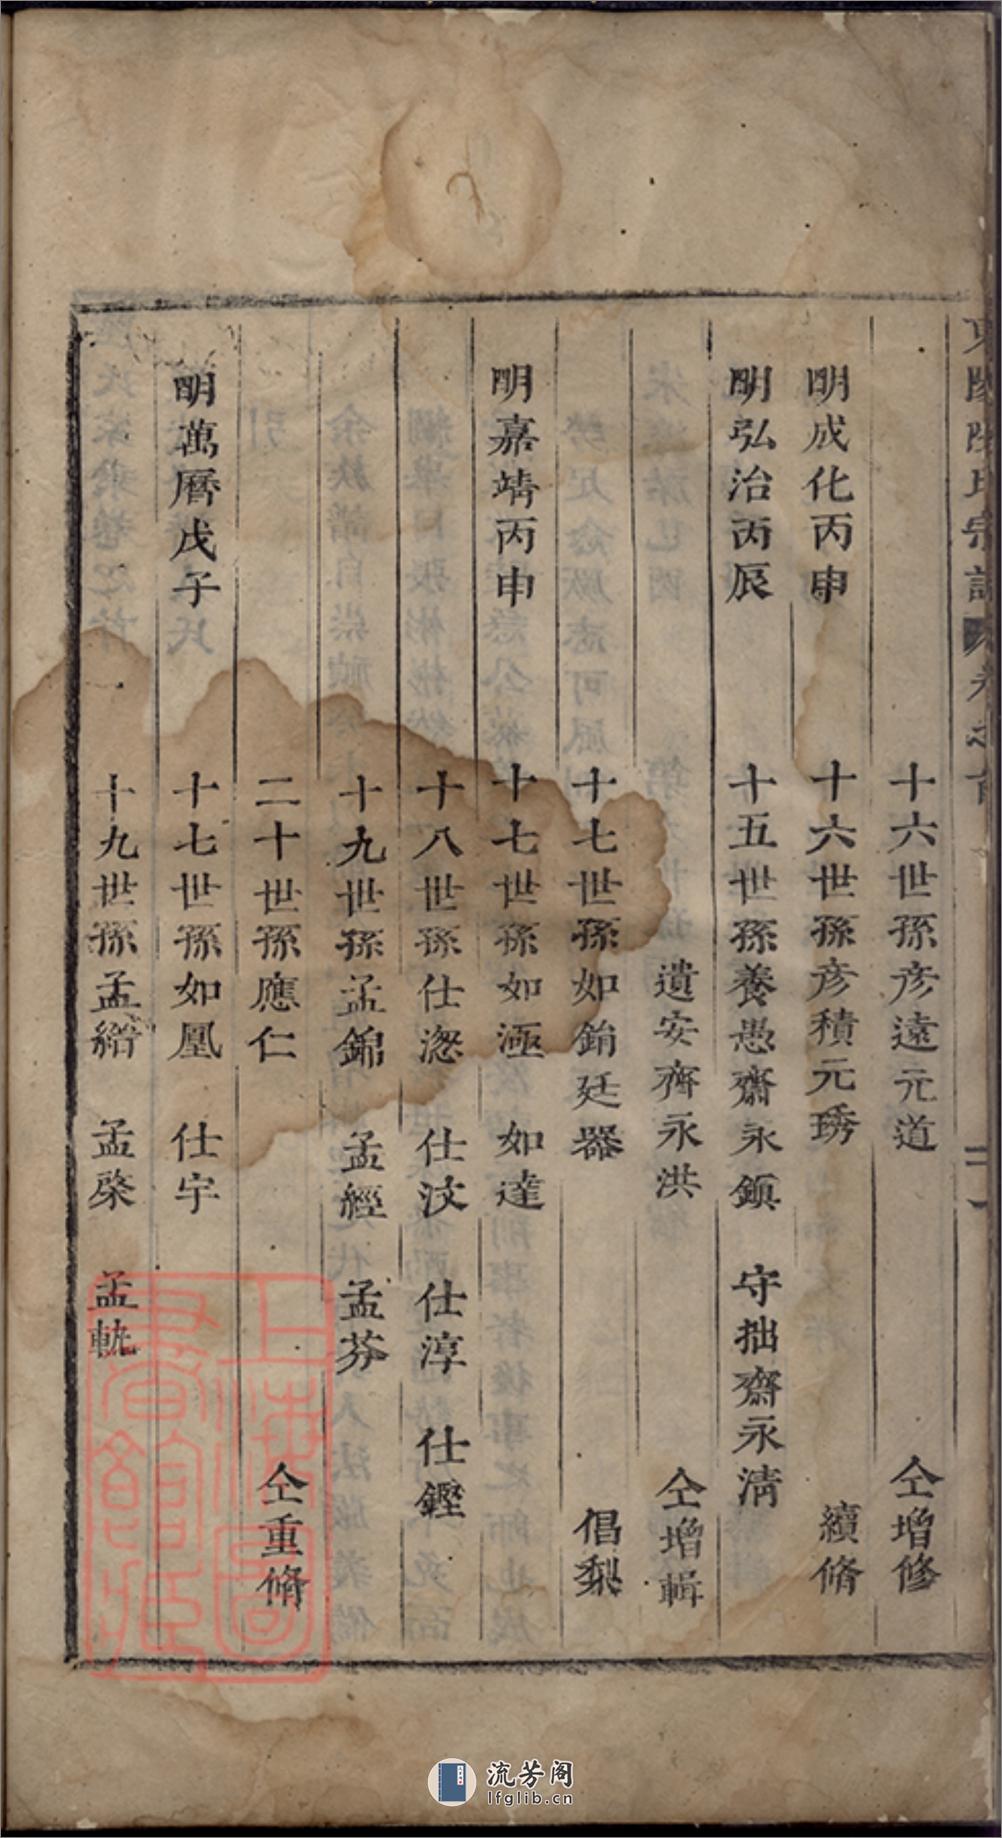 十六世孫彥遠元道 仝增修
明成化丙申 十六世孫彥積元琇 續脩
明弘治丙辰 十五世孫養愚齋永鎮 守拙齋永淸
遺安齋永洪 仝增輯
十七世孫如銷廷器 倡梨
明嘉靖丙申 十七世孫如極 如達
十八世孫仕淴 仕汶 仕淳 仕鏗
十九世孫孟錦 孟經 孟芬
二十世孫應仁 仝重脩
明萬曆戊子 十七世孫如凰 仕宇
十九世孫孟縉 孟榮 孟軏
宗譜 卷之首
二
上海圖書館藏
流芳阁
lfglib.cn